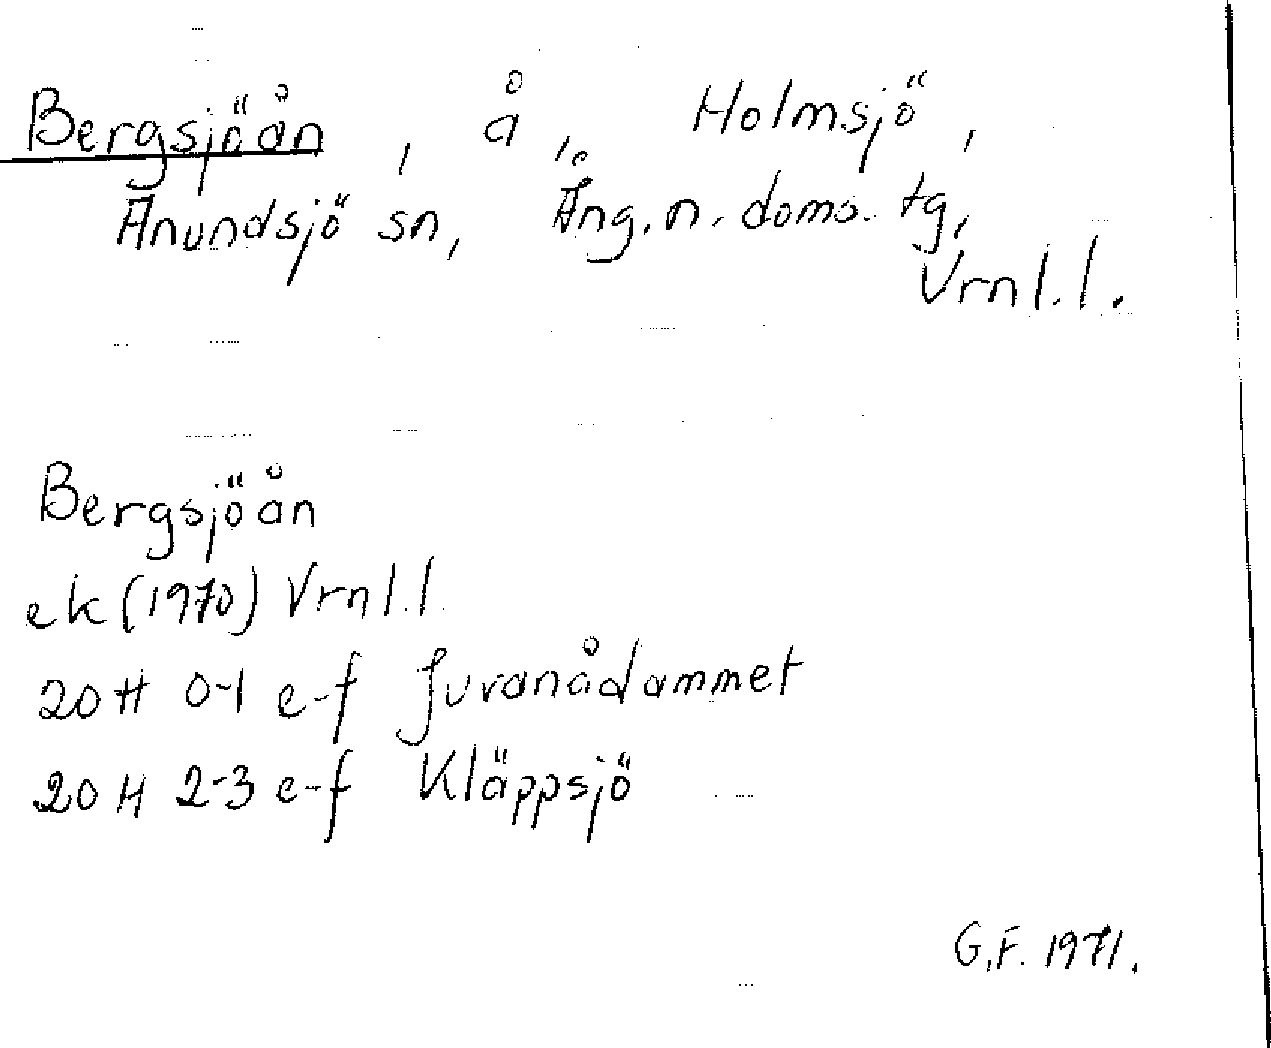 Bergsjöån, å, Holmsjö,
Anundsjö sn, Ång. n. doms. tg,
Vrnl. l.
Bergsjöån
ek (1970) Vrnl. l.
20 H 0-1 e-f Juvanådammet
20 H 2-3 e-f Kläppsjö
G.F. 1971.